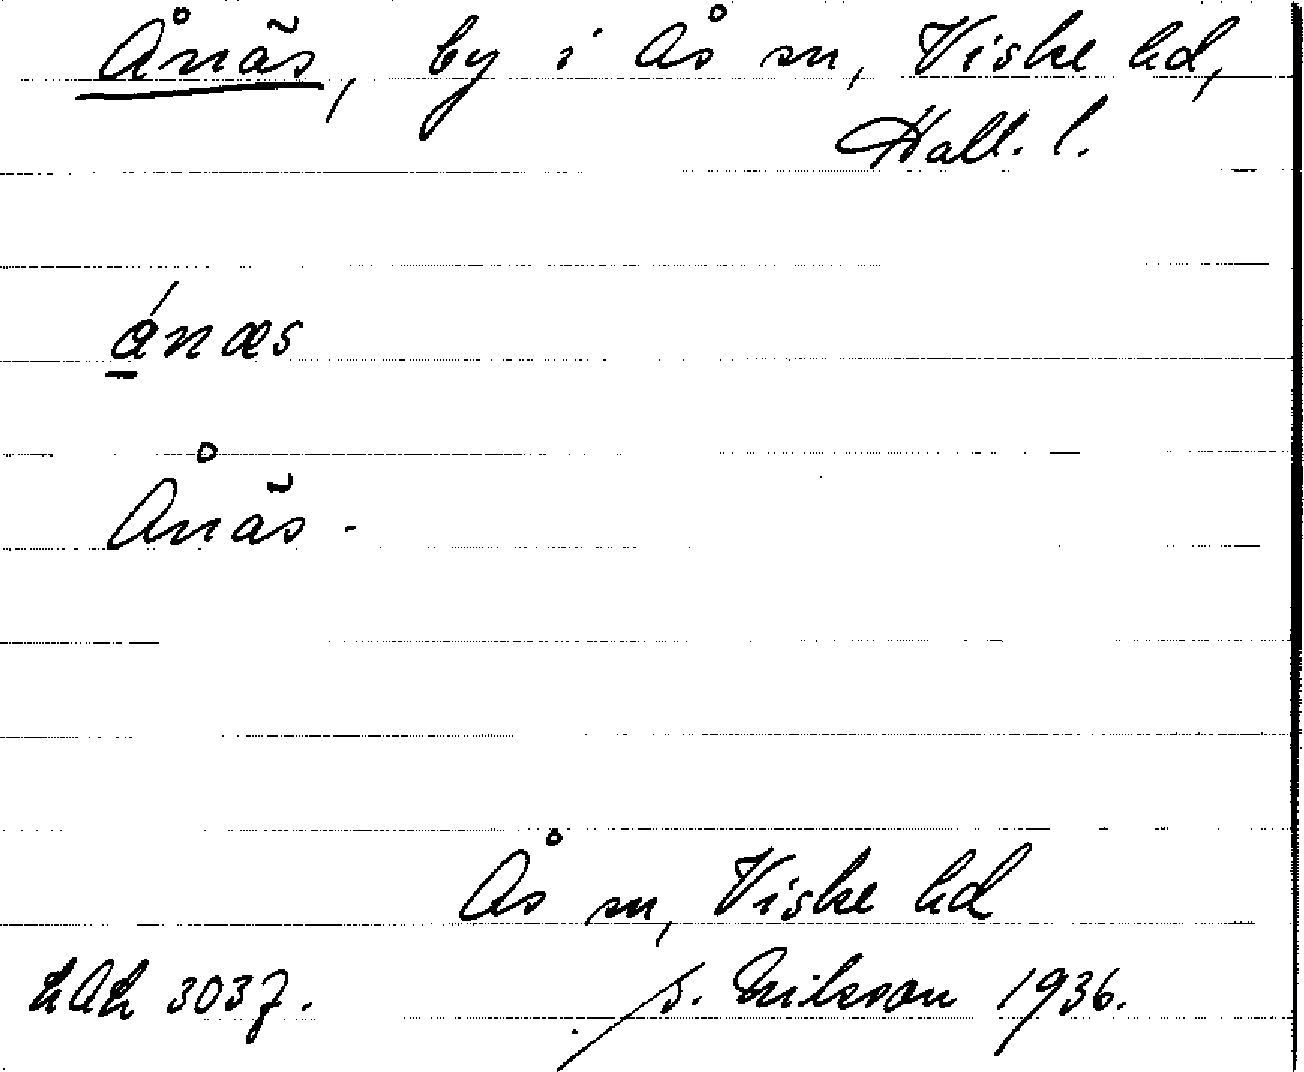 Ånäs, by i Ås sn, Viske hd,
Hall. l.
ánæs
Ånäs.
Ås sn, Viske hd
LAL 3037. S. Eriksson 1936.